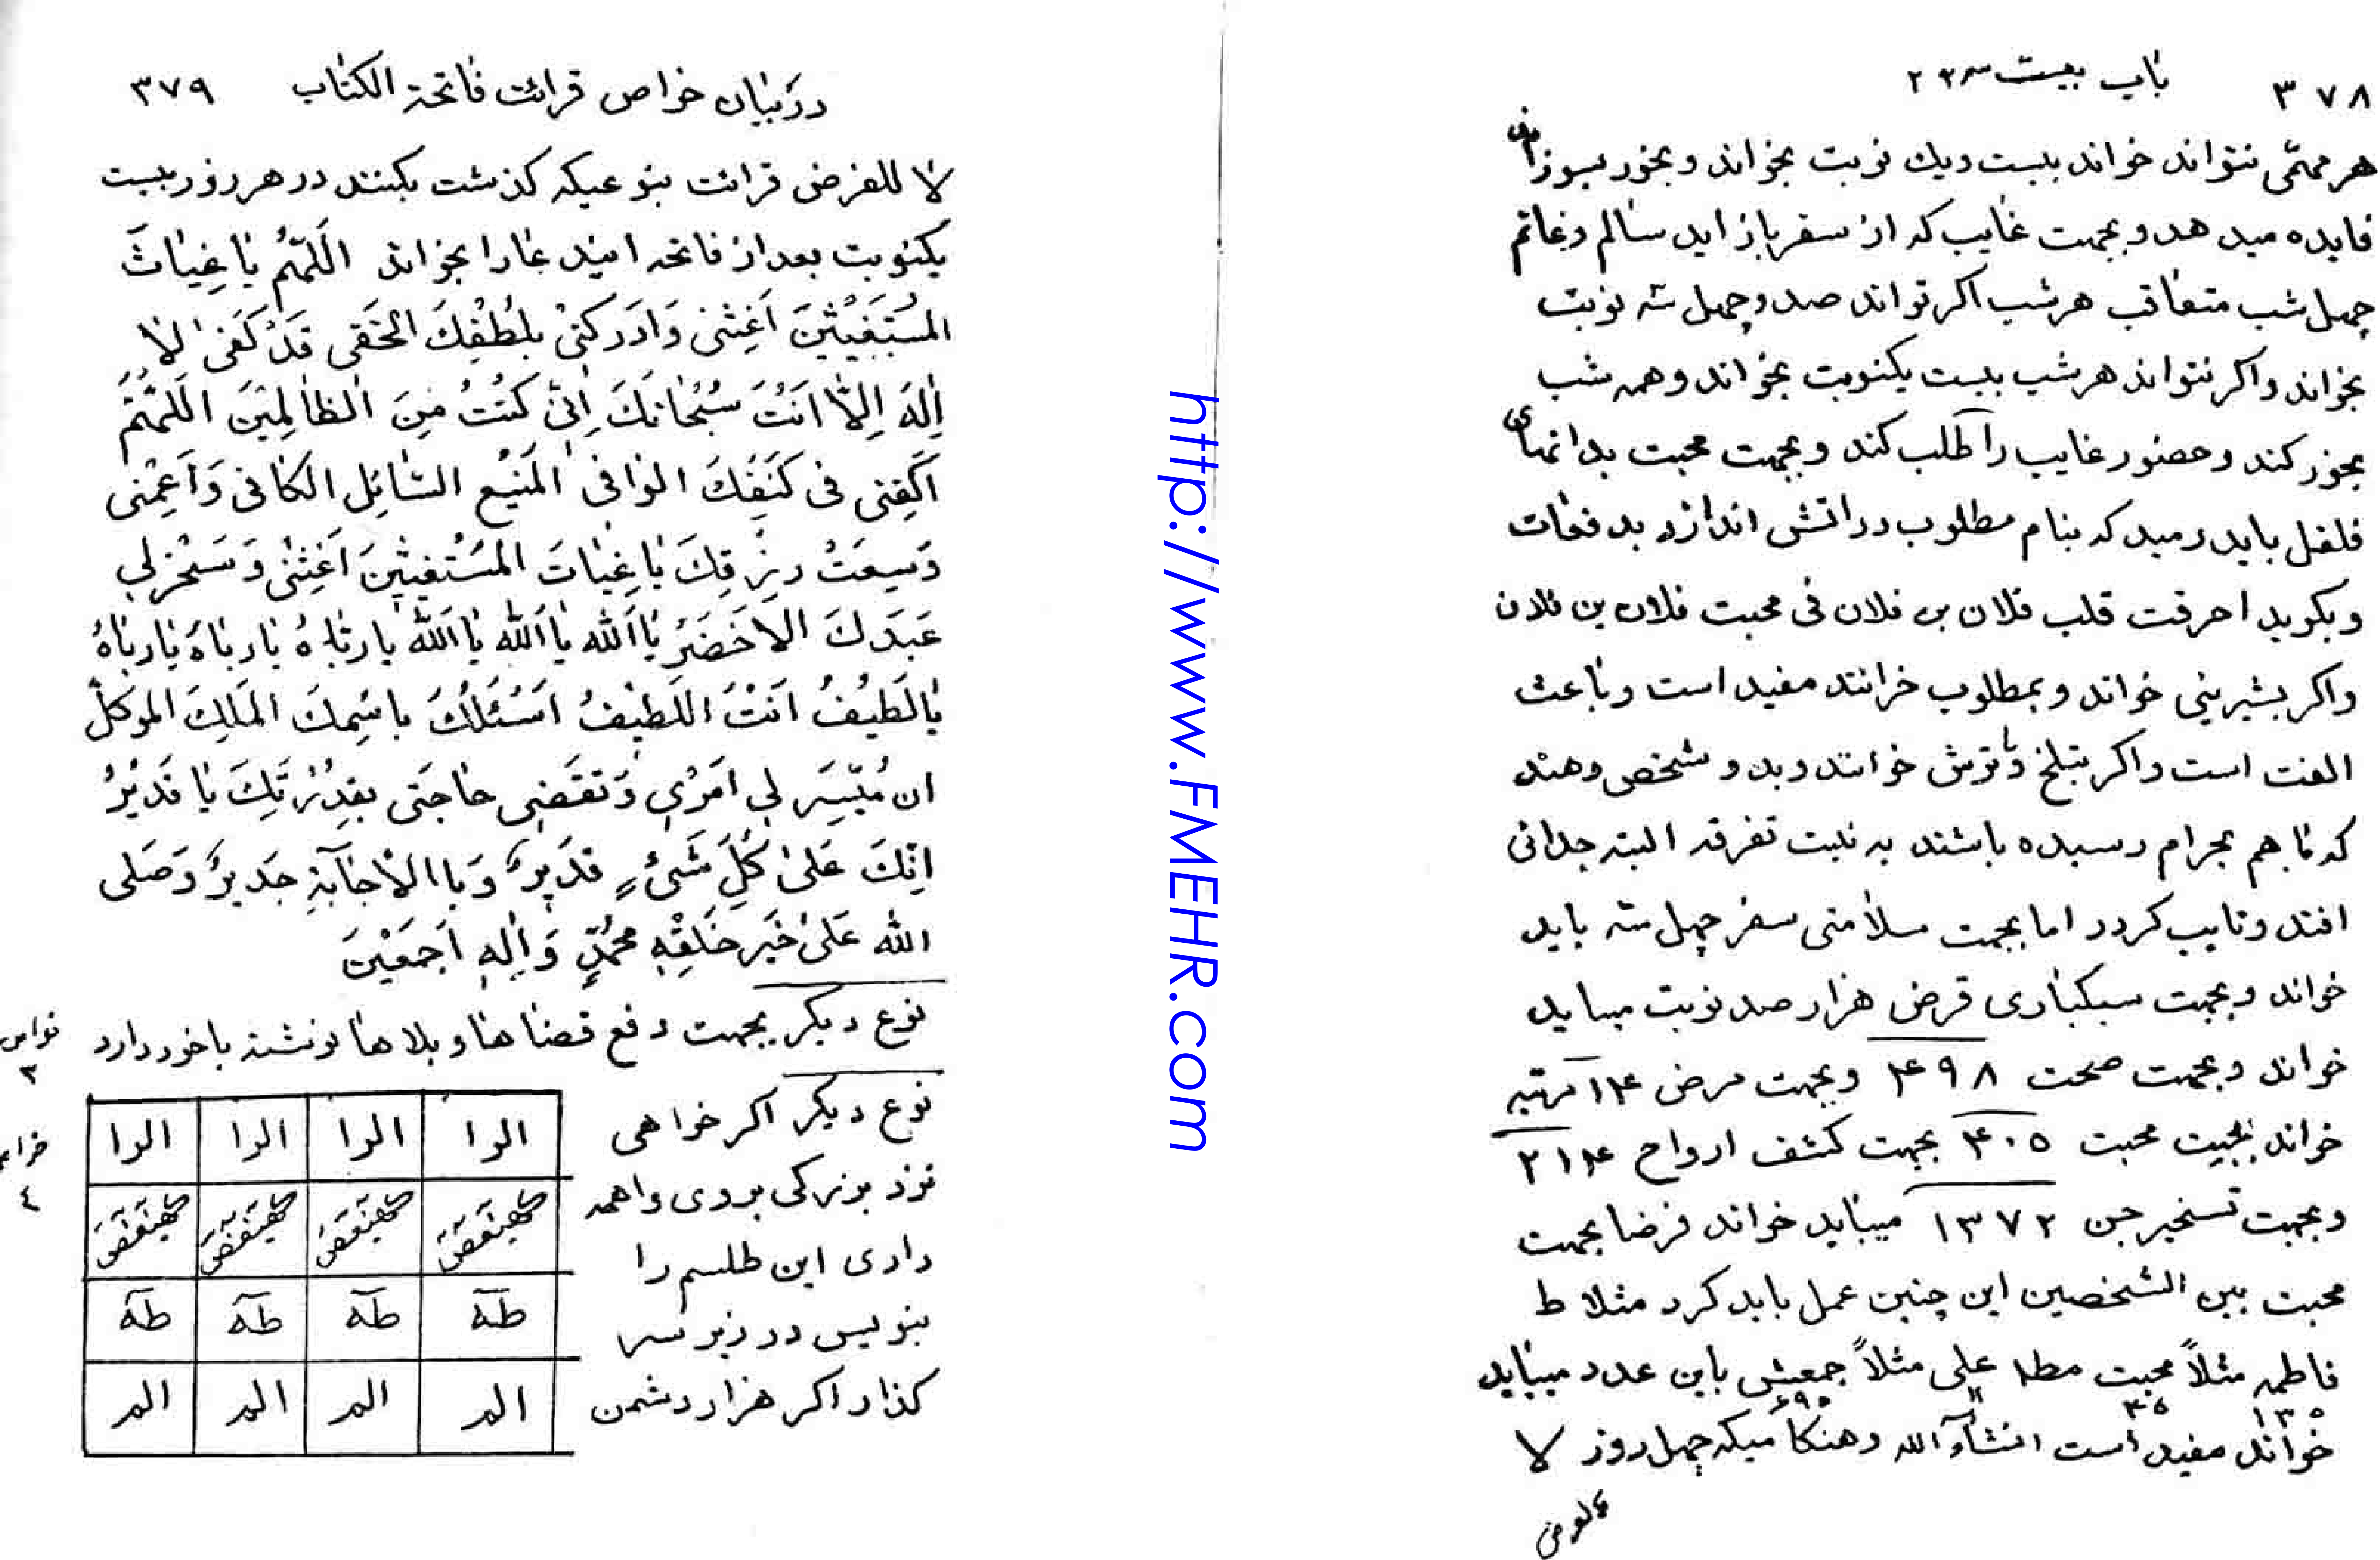 ۳۷۸ باب بیست
هر مهمّی نتواند خواند بیست ویك نوبت بخواند و بخور بسوزاند
فایده میدهد و بجهت غایب که از سفر باز اید سالم وغانم
چهل شب متعاقب هر شب اکر تواند صد و چهل سه نوبت
بخواند واکر نتواند هر شب بیست یکنوبت بخواند و همه شب
بخور کند و حضور غایب را طلب کند و بجهت محبت بدانهای
فلفل باید دمید که بنام مطلوب در اتش اندازد بدفعات
وبکوید احرقت قلب فلان بن فلان فی محبت فلان بن فلان
واکر بشیرینی خواند و بمطلوب خرانند مفید است وباعث
الفت است واکر بتلخ وترش خوانند وبدو شخص دهند
که باهم بحرام رسیده باشند به نیت تفرقه البته جدائی
افتد وتایب کردد اما بجهت سلامتی سفر چهل سه باید
خواند و بجهت سبکباری قرض هزار صد نوبت میباید
خواند و بجهت صحت ۴۹۸ وبجهت مرض ۱۴ مرتبه
خواند بجهت محبت ۴۰۵ بجهت کشف ارواح ۲۱۴
وبجهت تسخیر جن ۱۳۷۲ میباید خواند فرضا بجهت
محبت بین الشخصین این چنین عمل باید کرد مثلا ط
فاطمه مثلاً محبت مطا علی مثلاً جمعش باین عدد میباید
۱۳۵
خواند مفید است انشاء الله وهنکامیکه چهل روز لا
در بیان خواص قرائت فاتحة الکتاب ۳۷۹
لا للغرض قرائت بنوعیکه کذشت بکنند در هر روز بیست
یکنوبت بعد از فاتحه ایند عا را بخواند اَللّهُمَّ یا غِیاثَ
المُستَغیثینَ اَغِثنی وَادَرِکنی بِلُطفِكَ الخَفی قَد کَفی لا
اِلهَ اِلاّ اَنتَ سُبحانَكَ اِنّی کُنتُ مِنَ الظالِمینَ اَللّهُمَّ
اَکفِنی فی کَنَفِكَ الوافی المَنیعِ الشائِلِ الکافی وَاَعِمنی
وَسِعَتُ رِزقِكَ یا غِیاثَ المُستَغیثینَ اَغِثنی وَسَخِرلی
عَبدَكَ الاَخضَر یااَلله یااَلله یااَلله یا ربّاهُ یا ربّاهُ یا ربّاهُ
یالَطیفُ اَنتَ اللَطیفُ اَسئَلُكَ باسمِكَ المَلِكَ الموَکل
ان مُیَسِّرَ لی اَمری وَتَقضی حاجَتی بِقُدرَتِكَ یا قَدیرُ
اِنَّكَ عَلی کُلِّ شَیءٍ قَدیرٌ وَبِاالاجابَةِ جَدیرٌ وَصَلی
الله عَلی خَیرِ خَلقِهِ مُحَمَّدٍ وَالِهِ اَجمَعینَ
نوع دیکر بجهت دفع قضاها و بلاها نوشته باخود دارد
۳
نوع دیکر اکر خواهی
٤
نزد بزرکی بروی واهمه
داری این طلسم را
بنویس در زیر سر
کذار اکر هزار دشمن
الرا الرا الرا الرا
کهیعص کهیعص کهیعص کهیعص
طه طه طه طه
المر المر المر المر
http://www.FMEHR.com